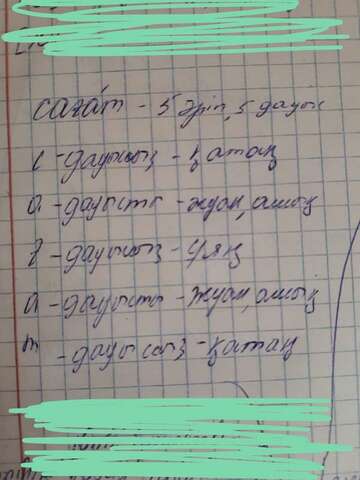 сағат - 5 әріп, 5 дауыс
с - дауыссыз - қатаң
а - дауысты - жуан, ашық
ғ - дауыссыз - ұяң
а - дауысты - жуан, ашық
т - дауыссыз - қатаң